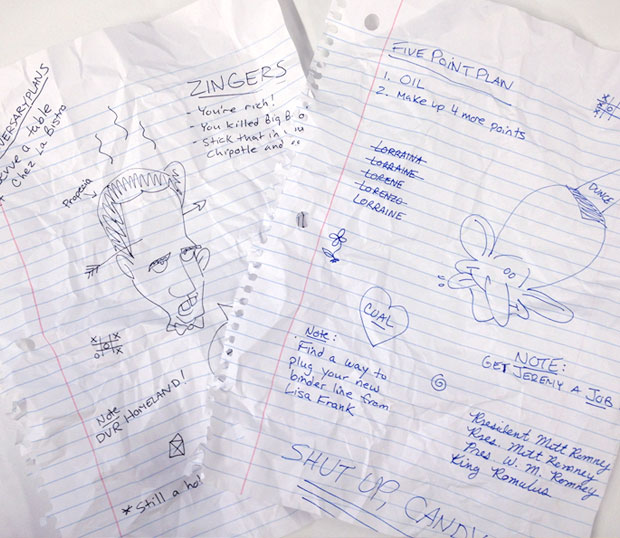 VERSARY PLANS
a table
Chez La Bistro
ZINGERS
- You're rich!
- You killed Big B
- Stick that in
Chipotle and
Propecia
X
O X
O X
Note
DVR HOMELAND!
*Still a
FIVE POINT PLAN
1. OIL
2. Make up 4 more points
X
O
X
LORRAINA
LORRAINE
LORENE
LORENZO
LORRAINE
DUNCE
CUAL
Note:
Find a way to
plug your new
binder line from
Lisa Frank
NOTE:
GET JEREMY A JOB
President Mitt Romney
Pres. Mitt Romney
Pres W. M. Romney
King Romulus
SHUT UP, CANDY